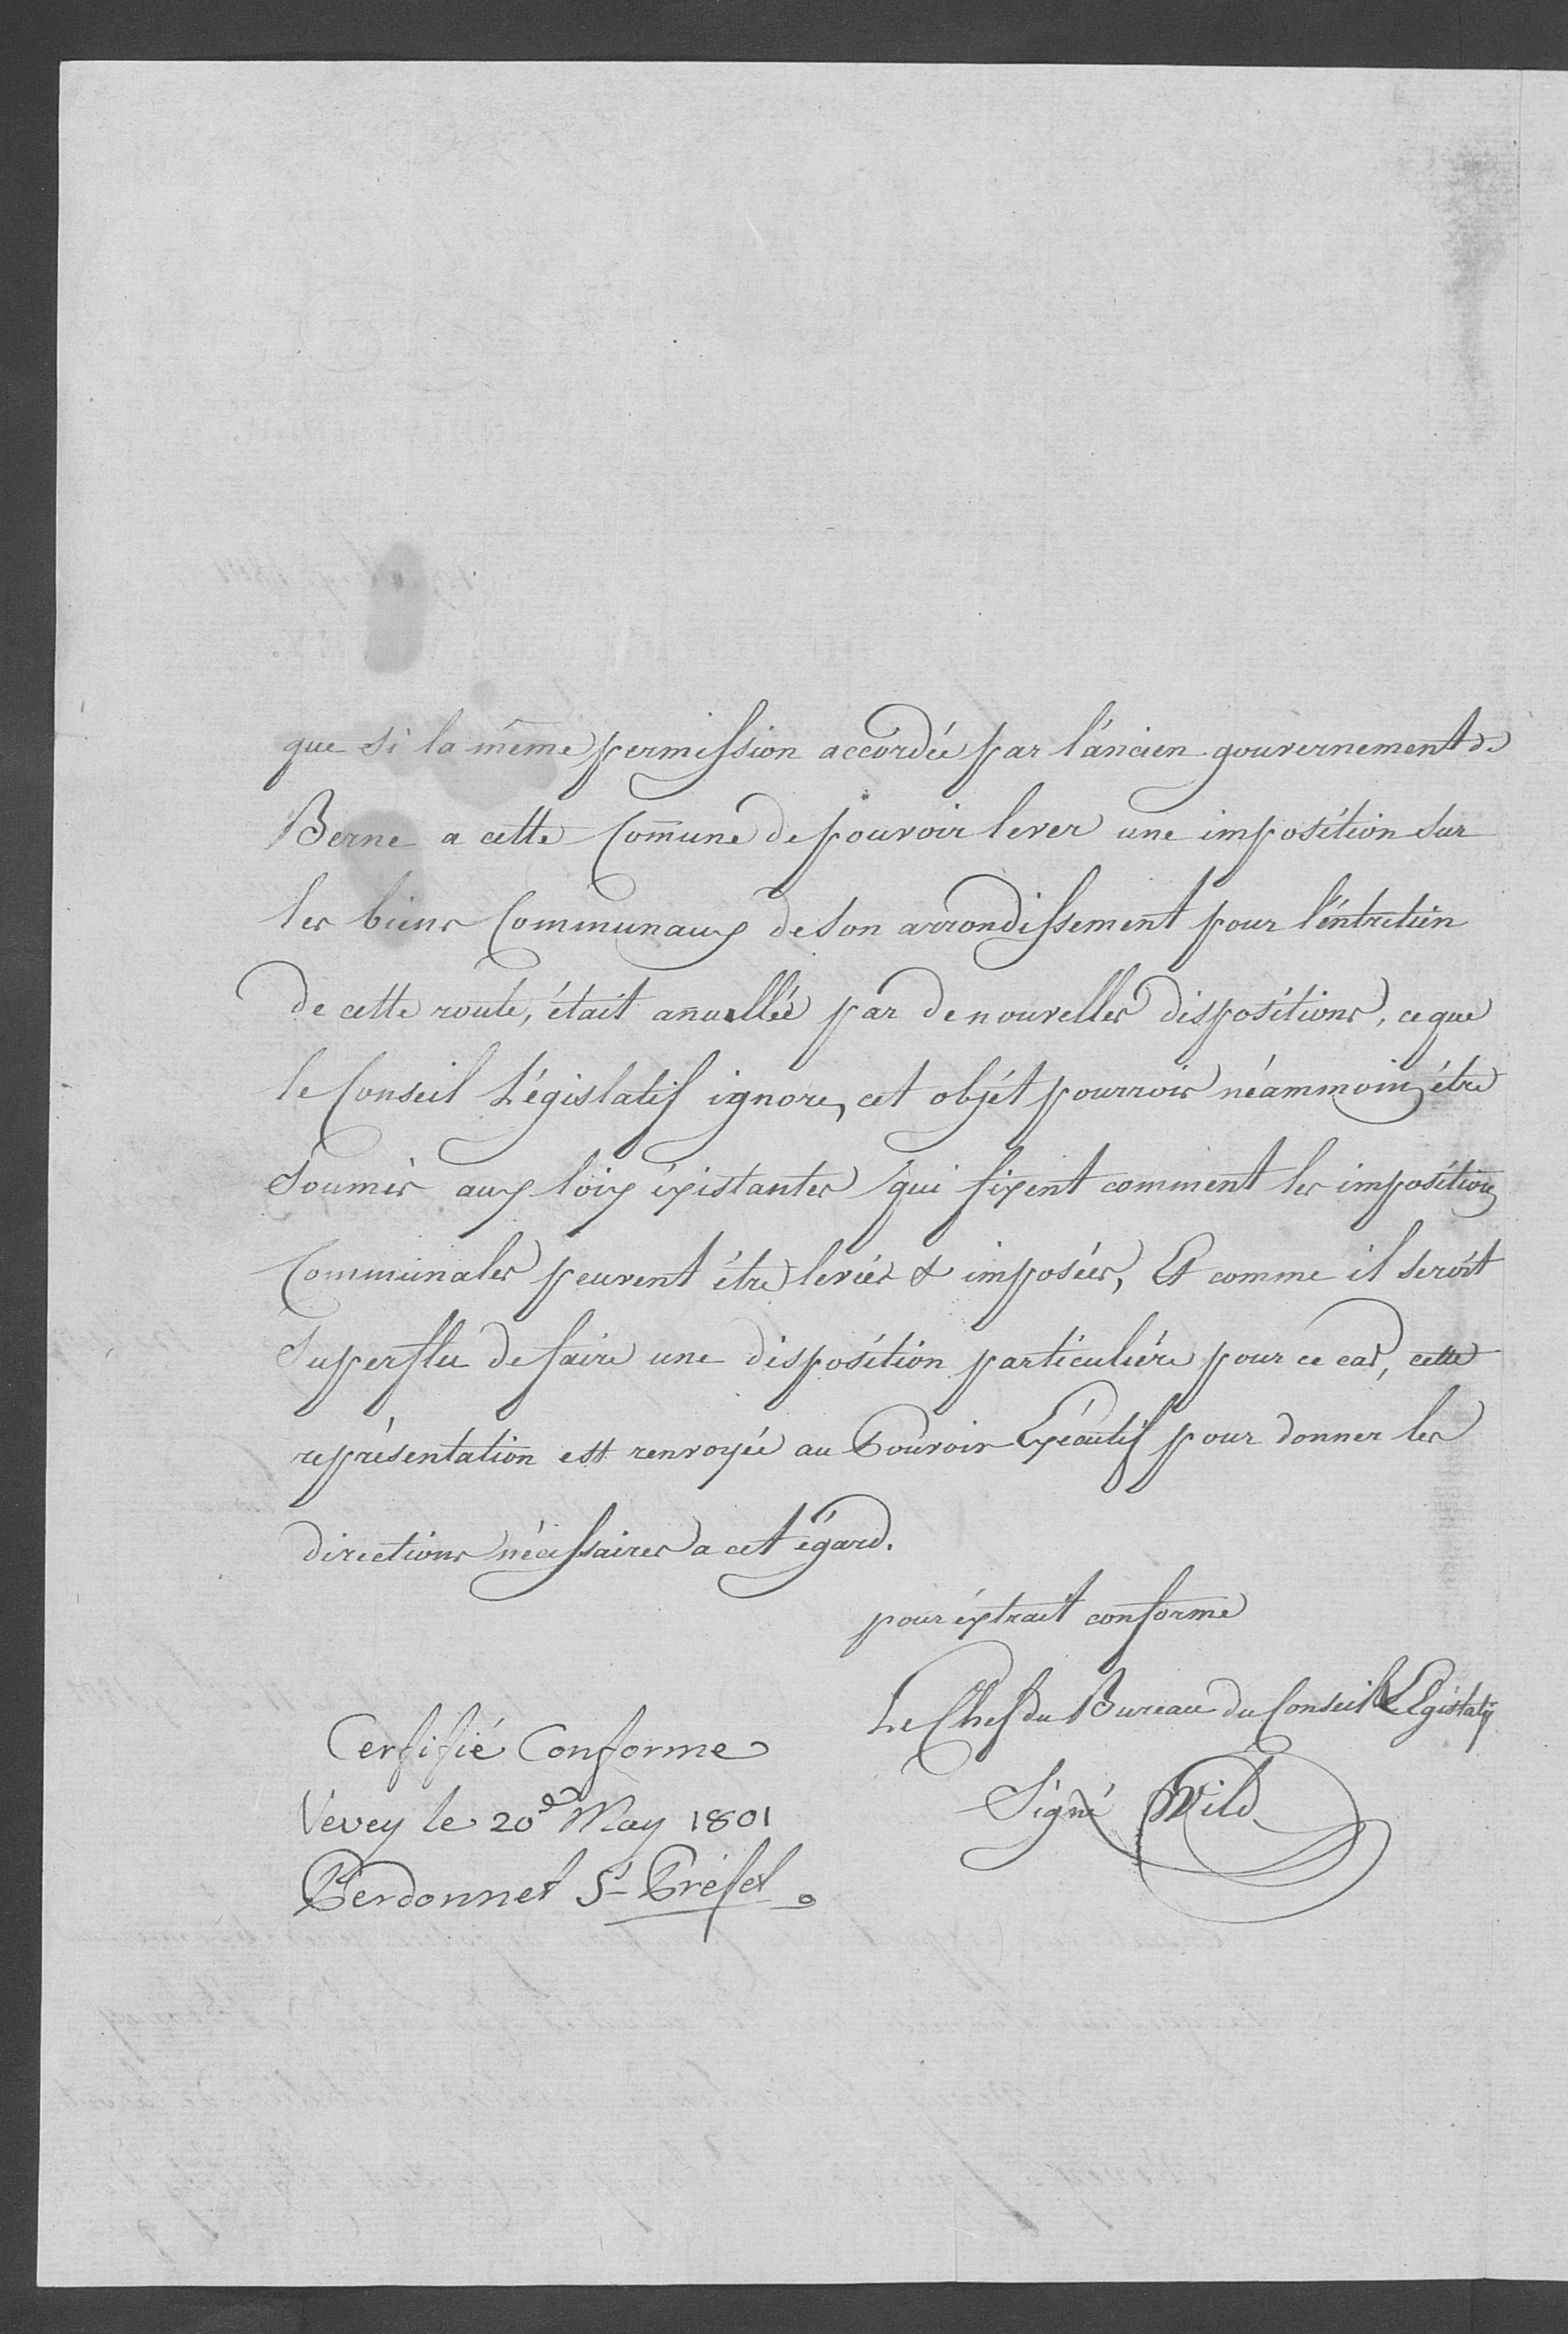 que si la même permission accordée par l'áncien gouvernement de
Berne a cette Com̄une de pouvoir lever une imposition sur
les biens Communaux de son arrondissement pour l'éntretien
de cette route, était anullée par de nouvelles dispositions, ce que
le Conseil Législatif ignore, cet objét pourroit néammoins être
Soumis aux loix éxistantes qui fixent comment les impositions
Communales peuvent être levées & imposées, Et comme il seroit
Superflu de faire une disposition particulière pour ce cas, cette
représentation est renvoyée au Pouvoir Exécutif pour donner les
directions nécessaires a cet égard.
pour éxtrait conforme
Le Chef du Bureau du Conseil Législatif
Signé Wild
Certifié Conforme
Vevey le 20e May 1801
Perdonnet S-Préfet